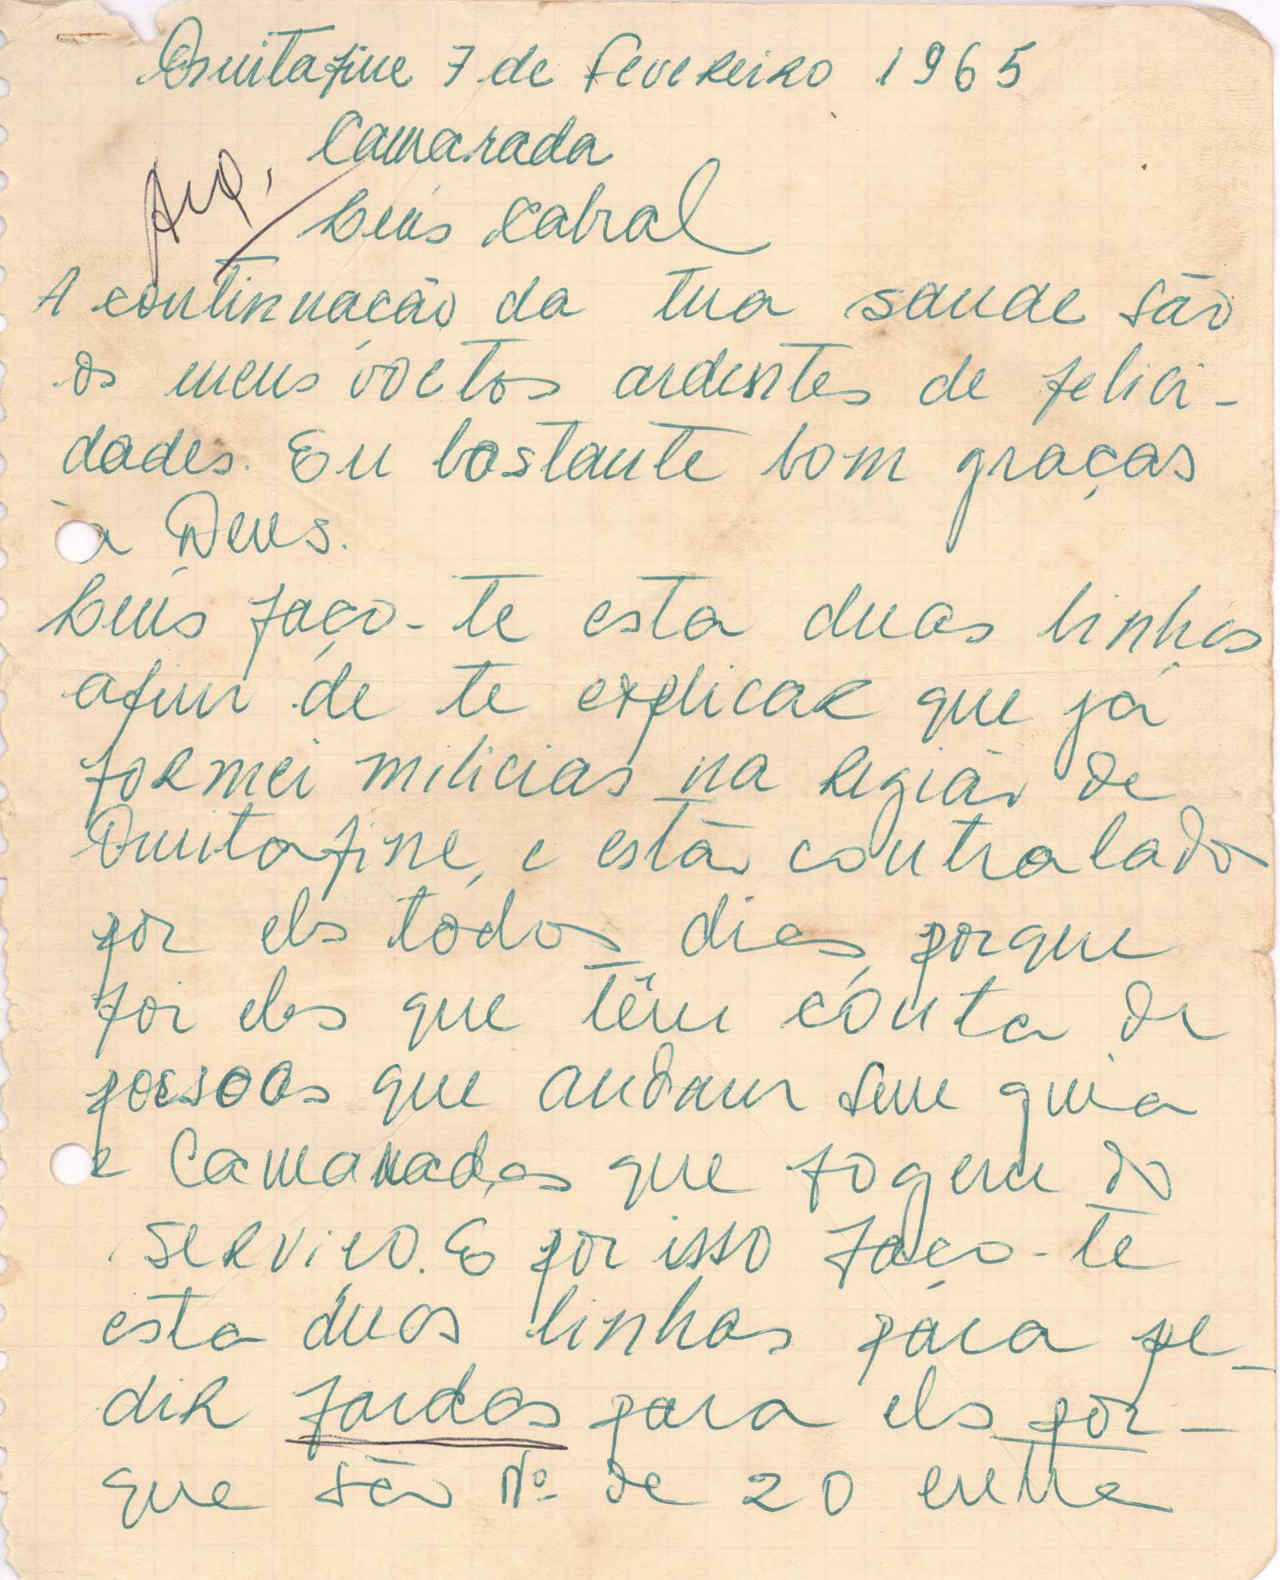 Quitafine 7 de Fevereiro 1965
Camarada
Arq.
Luís Cabral
A continuação da tua saude são
os meus voctos ardentes de felici-
dades. Eu bastante bom graças
à Deus.
Luís faço-te esta duas linhas
afim de te explicar que já
formei milicias na região de
Quitafine, e estão contralado
por els todos dias porque
foi eles que têm conta de
pessoas que andam sem guia
e Camaradas que fogem do
serviço. E por isso faço-te
esta duas linhas para pe-
dir fardas para els por-
que são Nº de 20 entre